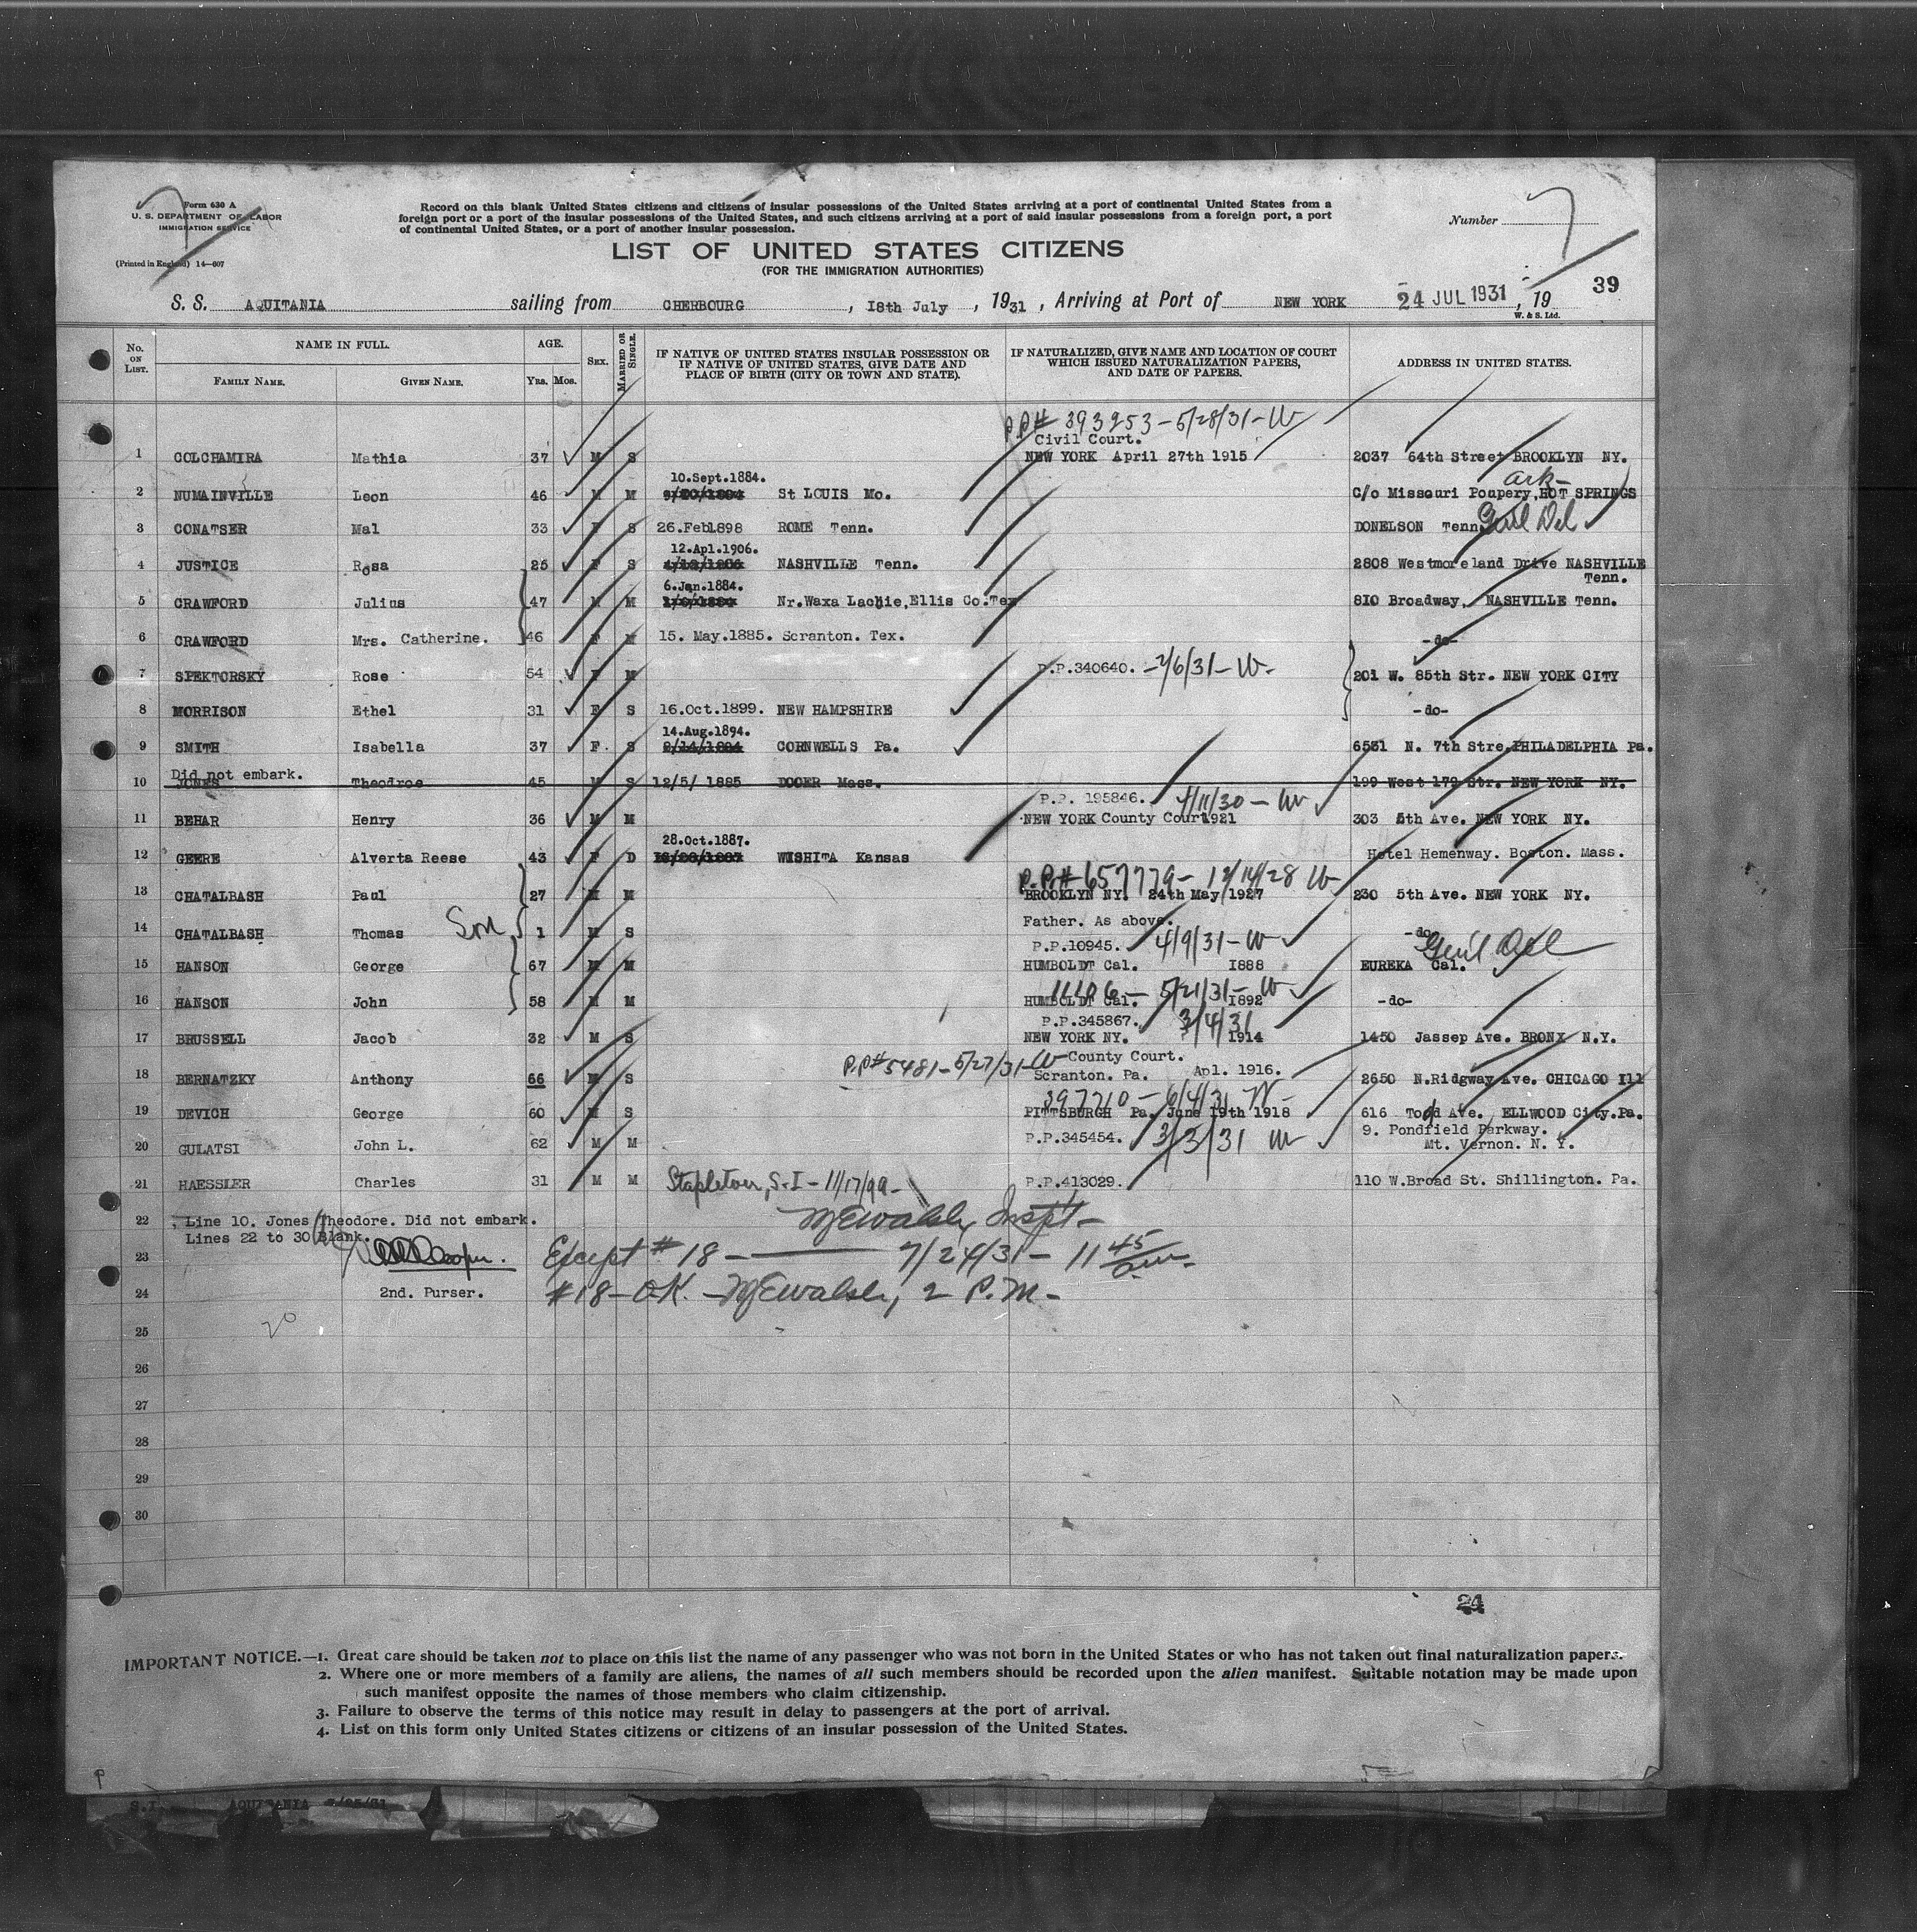 Form 630 A
U. S. DEPARTMENT OF LABOR
IMMIGRATION SERVICE
(Printed in England) 14—607
7
Record on this blank United States citizens and citizens of insular possessions of the United States arriving at a port of continental United States from a
foreign port or a port of the insular possessions of the United States, and such citizens arriving at a port of said insular possessions from a foreign port, a port
of continental United States, or a port of another insular possession.
Number 7
LIST OF UNITED STATES CITIZENS
(FOR THE IMMIGRATION AUTHORITIES)
39
S. S. AQUITANIA sailing from CHERBOURG, 18th July, 1931, Arriving at Port of NEW YORK 24 JUL 1931, 19
W. & S. Ltd.
No. ON LIST. NAME IN FULL. AGE. SEX. MARRIED OR SINGLE. IF NATIVE OF UNITED STATES INSULAR POSSESSION OR IF NATIVE OF UNITED STATES, GIVE DATE AND PLACE OF BIRTH (CITY OR TOWN AND STATE). IF NATURALIZED, GIVE NAME AND LOCATION OF COURT WHICH ISSUED NATURALIZATION PAPERS, AND DATE OF PAPERS. ADDRESS IN UNITED STATES.
FAMILY NAME. GIVEN NAME. YRS. MOS.
P.P.# 393953-5/28/31-W
Civil Court.
1 COLCHAMIRA Mathia 37 M S NEW YORK April 27th 1915 2037 64th Street BROOKLYN NY.
10.Sept.1884. Ark-
2 NUMAINVILLE Leon 46 M M 9/10/1884 St LOUIS Mo. C/o Missouri Poupery,HOT SPRINGS
3 CONATSER Mal 33 F S 26.Feb1898 ROME Tenn. DONELSON Tenn Genl Del
12.Apl.1906.
4 JUSTICE Rosa 25 F S 4/12/1906 NASHVILLE Tenn. 2808 Westmoreland Drive NASHVILLE
Tenn.
6.Jan.1884.
5 CRAWFORD Julius 47 M M 1/6/1884 Nr.Waxa Lachie,Ellis Co.Tex 810 Broadway, NASHVILLE Tenn.
6 CRAWFORD Mrs. Catherine. 46 F M 15. May.1885. Scranton. Tex. -do-
7 SPEKTORSKY Rose 54 F M P.P.340640. -2/6/31-W- 201 W. 85th Str. NEW YORK CITY
8 MORRISON Ethel 31 F S 16.Oct.1899. NEW HAMPSHIRE -do-
14.Aug.1894.
9 SMITH Isabella 37 F. S CORNWELLS Pa. 6531 N. 7th Stre,PHILADELPHIA Pa.
Did not embark.
10 JONES Theodroe 45 M S 12/5/ 1885 DOOER Mass. 199 West 179 Str. NEW YORK NY.
P.P. 195846. 4/11/30 - W
11 BEHAR Henry 36 M M NEW YORK County Court 1921 303 5th Ave. NEW YORK NY.
28.Oct.1887.
12 GEERE Alverta Reese 43 F D WISHITA Kansas Hotel Hemenway. Boston. Mass.
P.P.# 657779- 12/14/28 W
13 CHATALBASH Paul 27 M M BROOKLYN NY. 24th May 1927 230 5th Ave. NEW YORK NY.
Father. As above.
14 CHATALBASH Thomas Son 1 M S -do-
P.P.10945. 4/9/31-W Gen'l Del
15 HANSON George 67 M M HUMBOLDT Cal. 1888 EUREKA Cal.
11106 - 5/21/31-W
16 HANSON John 58 M M HUMBOLDT Cal. 1892 -do-
P.P.345867. 3/4/31
17 BRUSSELL Jacob 32 M S NEW YORK NY. 1914 1450 Jassep Ave. BRONX N.Y.
P.P.#5481-5/27/31-W County Court.
18 BERNATZKY Anthony 66 M S Scranton. Pa. Apl. 1916. 2650 N.Ridgway Ave. CHICAGO Ill
397710-6/4/31 W-
19 DEVICH George 60 M S PITTSBURGH Pa. June 19th 1918 616 Todd Ave. ELLWOOD City.Pa.
9. Pondfield Parkway.
20 GULATSI John L. 62 M M P.P.345454. 3/3/31 W Mt. Vernon. N. Y.
21 HAESSLER Charles 31 M M Stapleton, S.I-11/17/99- P.P.413029. 110 W.Broad St. Shillington. Pa.
22 Line 10. Jones Theodore. Did not embark.
Lines 22 to 30 Blank.
MEWalsh, Inspt-
23 Except #18 - 7/24/31- 11 45 am-
24 2nd. Purser. #18-OK. -MEWalsh, 2 P.M-
20
25
26
27
28
29
30
24
IMPORTANT NOTICE.—1. Great care should be taken not to place on this list the name of any passenger who was not born in the United States or who has not taken out final naturalization papers.
2. Where one or more members of a family are aliens, the names of all such members should be recorded upon the alien manifest. Suitable notation may be made upon
such manifest opposite the names of those members who claim citizenship.
3. Failure to observe the terms of this notice may result in delay to passengers at the port of arrival.
4. List on this form only United States citizens or citizens of an insular possession of the United States.
S.I. AQUITANIA